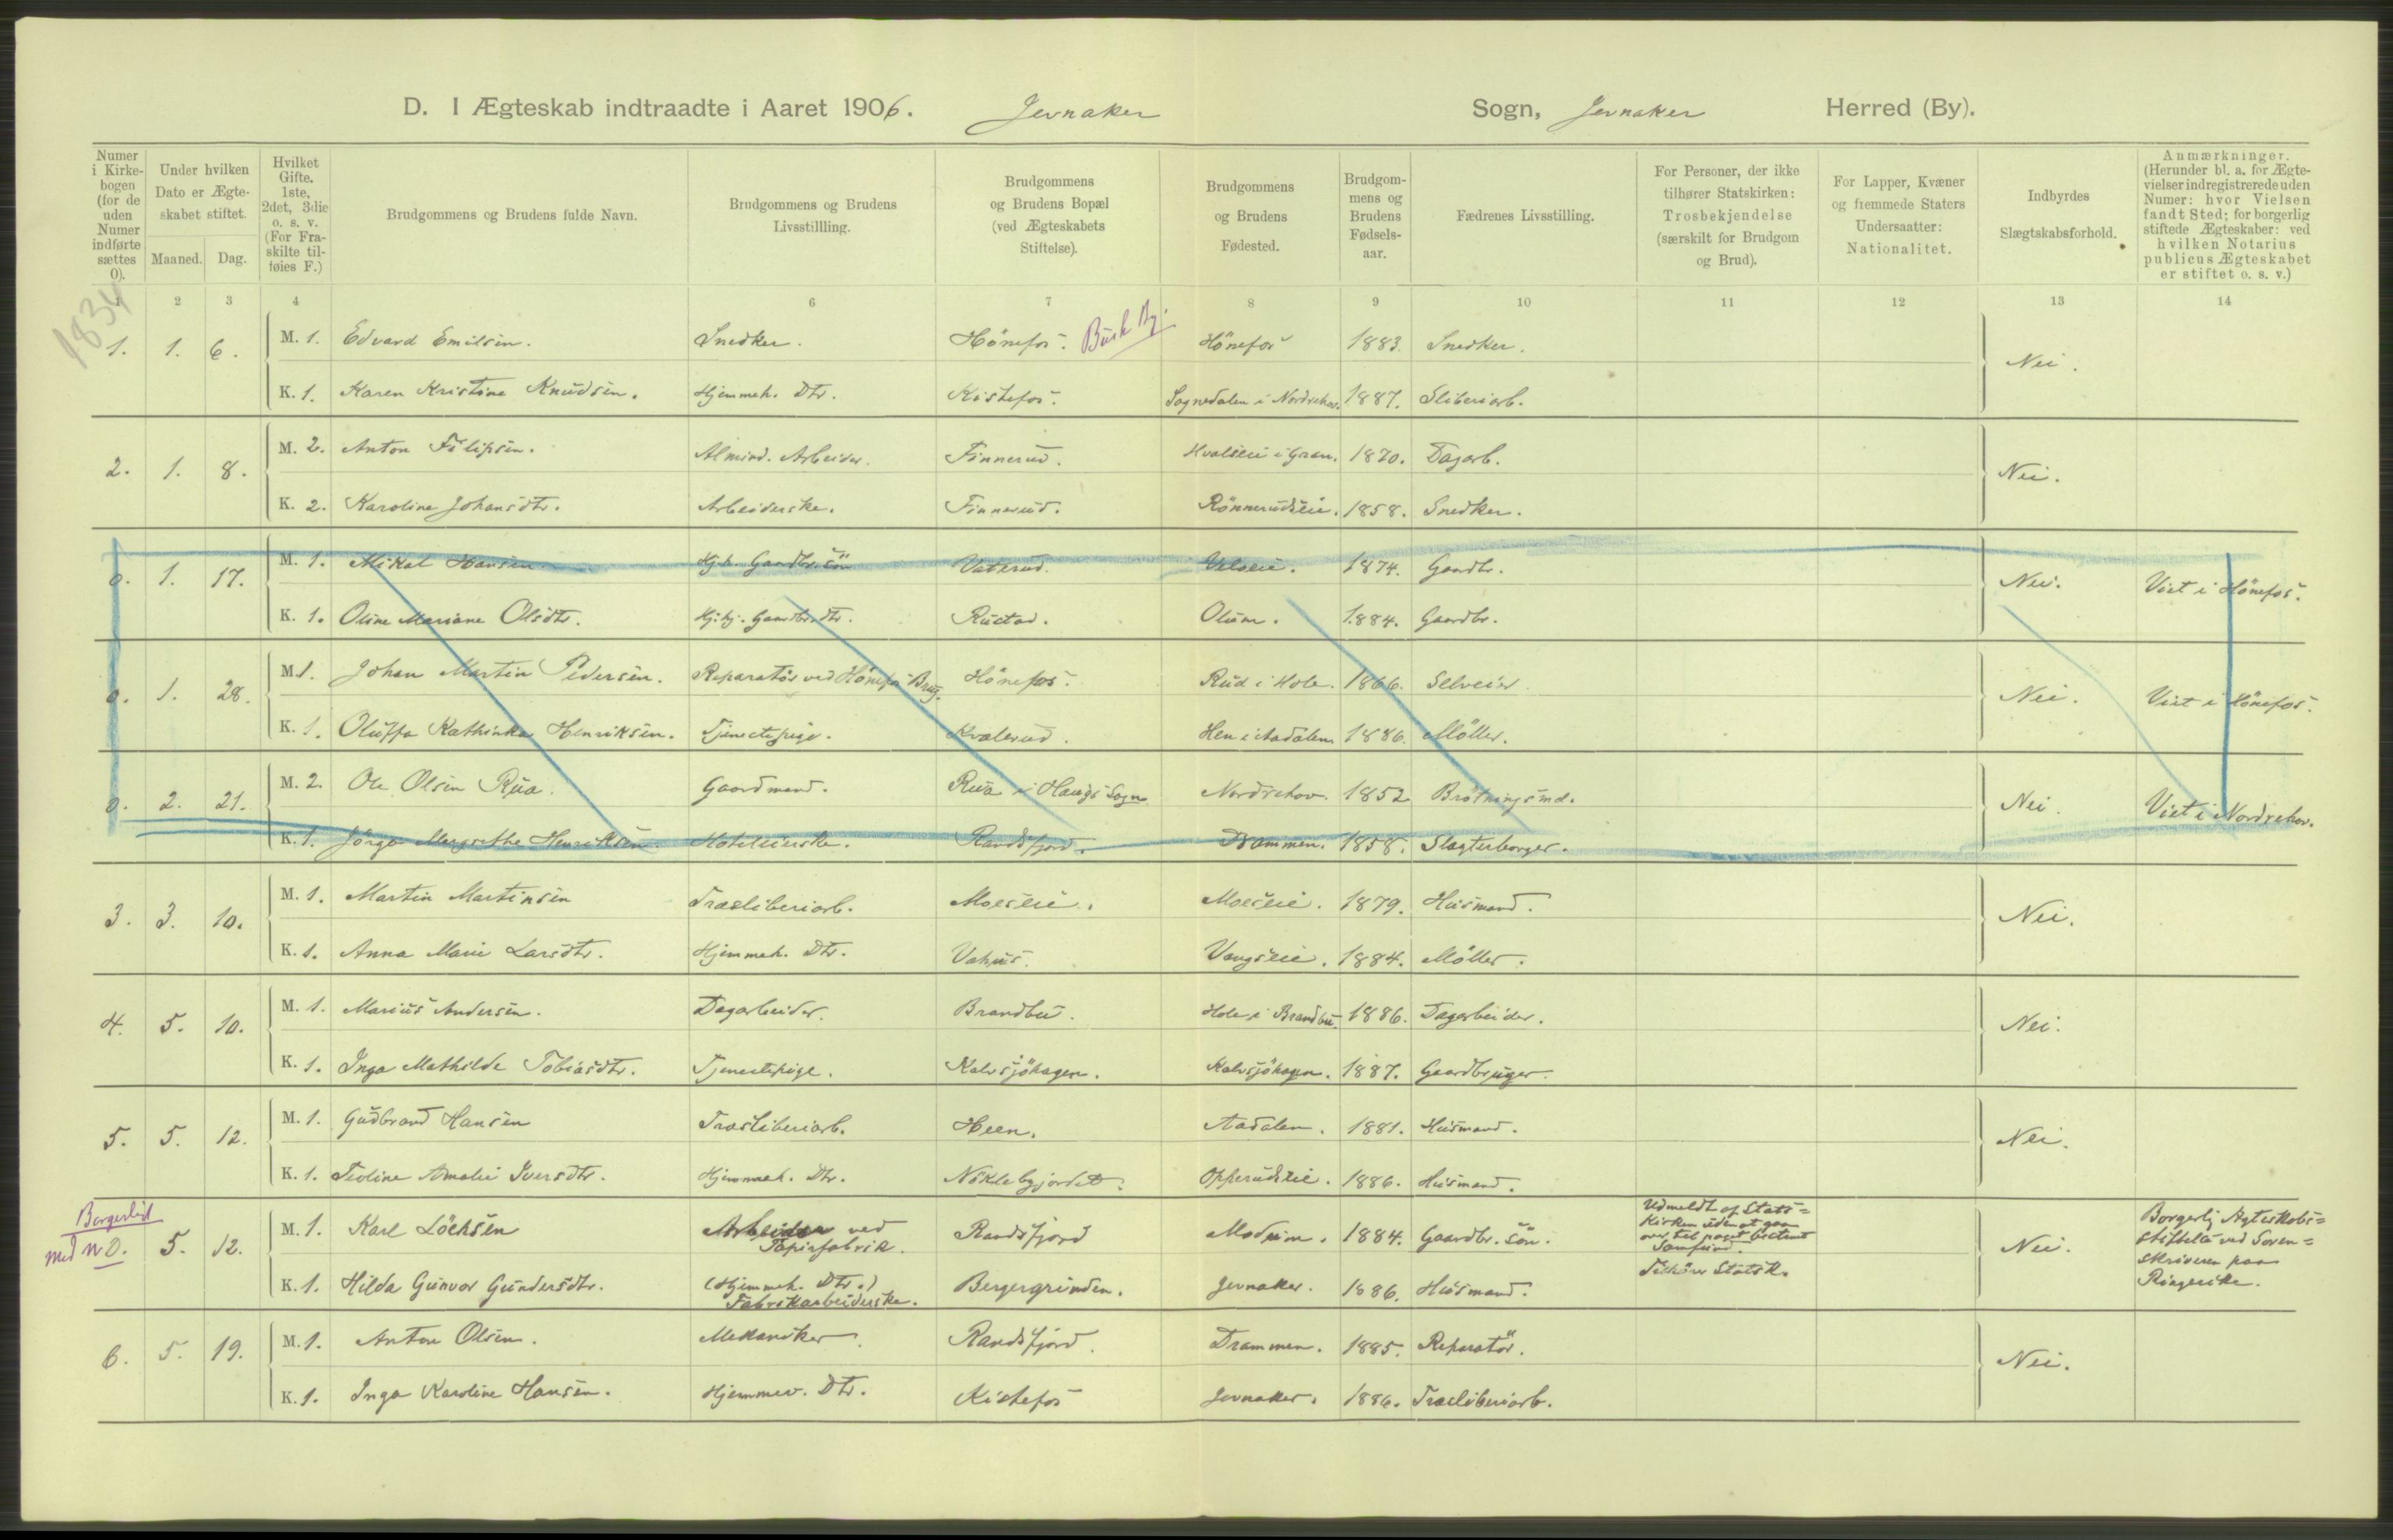 D. I Ægteskab indtraadte i Aaret 1906. Jevnaker Sogn, Jevnaker Herred (By).
Numer i Kirkebogen (for de uden Numer indførte sættes 0).
Under hvilken Dato er Ægteskabet stiftet.
Maaned. Dag.
Hvilket Gifte. 1ste, 2det, 3die o. s. v. (For Fraskilte tilføies F.)
Brudgommens og Brudens fulde Navn.
Brudgommens og Brudens Livsstillling.
Brudgommens og Brudens Bopæl (ved Ægteskabets Stiftelse).
Brudgommens og Brudens Fødested.
Brudgommens og Brudens Fødselsaar.
Fædrenes Livsstilling.
For Personer, der ikke tilhører Statskirken: Trosbekjendelse (særskilt for Brudgom og Brud).
For Lapper, Kvæner og fremmede Staters Undersaatter: Nationalitet.
Indbyrdes Slægtskabsforhold.
Anmærkninger. (Herunder bl. a. for Ægtevielser indregistrerede uden Numer: hvor Vielsen fandt Sted; for borgerlig stiftede Ægteskaber: ved hvilken Notarius publicus Ægteskabet er stiftet o. s. v.)
1834
1 2 3 4 6 7 8 9 10 11 12 13 14
1. 1. 6. M. 1. Edvard Emilsen. Snedker. Hönefos. Busk By. Hönefos 1883. Snedker. Nei.
K. 1. Karen Kristine Knudsen. Hjemmeh. Dtr. Kistefos. Sognedalen i Nordrehov. 1887. Sliberiarb.
2. 1. 8. M. 2. Anton Filipsen. Almind. Arbeider. Finnerud. Hvalseie i Gran. 1870. Dagarb. Nei.
K. 2. Karoline Johansdtr. Arbeiderske. Finnerud. Rönnerudseie. 1858. Snedker.
0. 1. 17. M. 1. Mikal Hansen Hj.h. Gaardbr. sön Vaterud. Velseie. 1874. Gaardbr. Nei. Viet i Hönefos.
K. 1. Oline Mariane Olsdtr. Hj.hj. Gaardbr. Dtr. Rustad. Olum. 1884. Gaardbr.
0. 1. 28. M. 1. Johan Martin Pedersen. Reparatör ved Hönefos Brug. Hönefos. Rud i Hole. 1866. Selveier. Nei. Viet i Hönefos.
K. 1. Oluffa Kathinka Henriksen. Tjenestepige. Kvalerud. Hen i Aadalen 1886. Möller.
0. 2. 21. M. 2. Ole Olsen Rua. Gaardmand. Rua i Haugs Sogn Nordrehov. 1852 Brötningsmd. Nei. Viet i Nordrehov.
K. 1. Jörga Margrethe Henriksen. Hoteleierske. Randsfjord. Drammen. 1858. Slagterborger.
3. 3. 10. M. 1. Martin Martinsen Træsliberiarb. Moeseie. Moeseie. 1879. Husmand. Nei.
K. 1. Anna Marie Larsdtr. Hjemmeh. Dtr. Vahus. Vangseie. 1884. Möller.
4. 5. 10. M. 1. Marius Andersen. Dagarbeider. Brandbu. Hole i Brandbu. 1886. Dagarbeider. Nei.
K. 1. Inga Mathilde Tobiasdtr. Tjenestepige. Kalvsjöhagen. Kalvsjöhagen. 1887. Gaardbruger.
5. 5. 12. M. 1. Gudbrand Hansen Træsliberiarb. Heen. Aadalen. 1881. Husmand. Nei.
K. 1. Teoline Amalie Iversdtr. Hjemmeh. Dtr. Nöklebyjordet. Opperudseie. 1886. Husmand.
Borgerligt
med N 0. 5. 12. M. 1. Karl Löchsen Arbeider ved Papirfabrik. Randsfjord Modum. 1884. Gaardbr. sön. Udmeldt af Statskirken uden at gaa over til noget bestemt Samfund. Nei. Borgerlig Ægteskabsstiftelse ved Sorenskriveren paa Ringerike.
K. 1. Hilda Gunvor Gundersdtr. (Hjemmeh. Dtr.) Fabrikarbeiderske. Bergergrunden. Jevnaker. 1886. Husmand. Tilhörer Statsk.
6. 5. 19. M. 1. Anton Olsen. Mekaniker. Randsfjord. Drammen. 1885. Reparatör. Nei.
K. 1. Inga Karoline Hansen. Hjemmev. Dtr. Kistefos Jevnaker. 1886. Træsliberiarb.